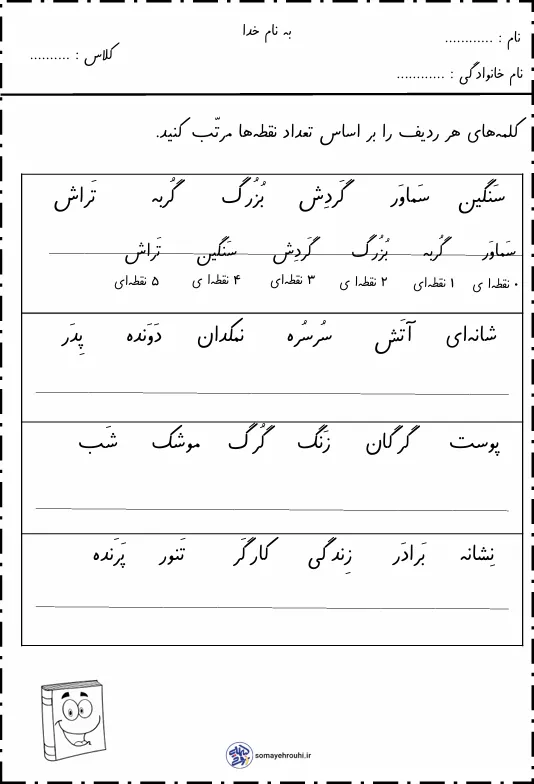 به نام خدا
نام : ............
کلاس : ..........
نام خانوادگی : ............
کلمه‌های هر ردیف را بر اساس تعداد نقطه‌ها مرتّب کنید.
سَنگین سَماوَر گَردِش بُزُرگ گُربه تَراش
سَماوَر گُربه بُزُرگ گَردِش سَنگین تَراش
۰ نقطه‌ا ی ۱ نقطه‌ای ۲ نقطه‌ا ی ۳ نقطه‌ای ۴ نقطه‌ا ی ۵ نقطه‌ای
شانه‌ای آتَش سُرسُره نمکدان دَوَنده پِدَر
پوست گرگان زَنگ گُرگ موشک شَب
نِشانه بَرادَر زِندگی کارگَر تَنور پَرَنده
somayehrouhi.ir